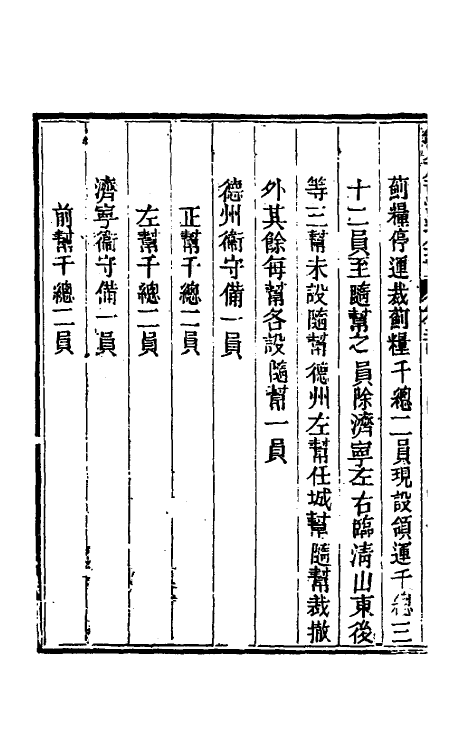 薊糧停運裁薊糧千總二員現設領運千總三
十二員至隨幫之員除濟寧左右臨清山東後
等三幫未設隨幫德州左幫任城幫隨幫裁撤
外其餘每幫各設隨幫一員
德州衞守備一員
正幫千總二員
左幫千總二員
濟寧衞守備一員
前幫千總二員